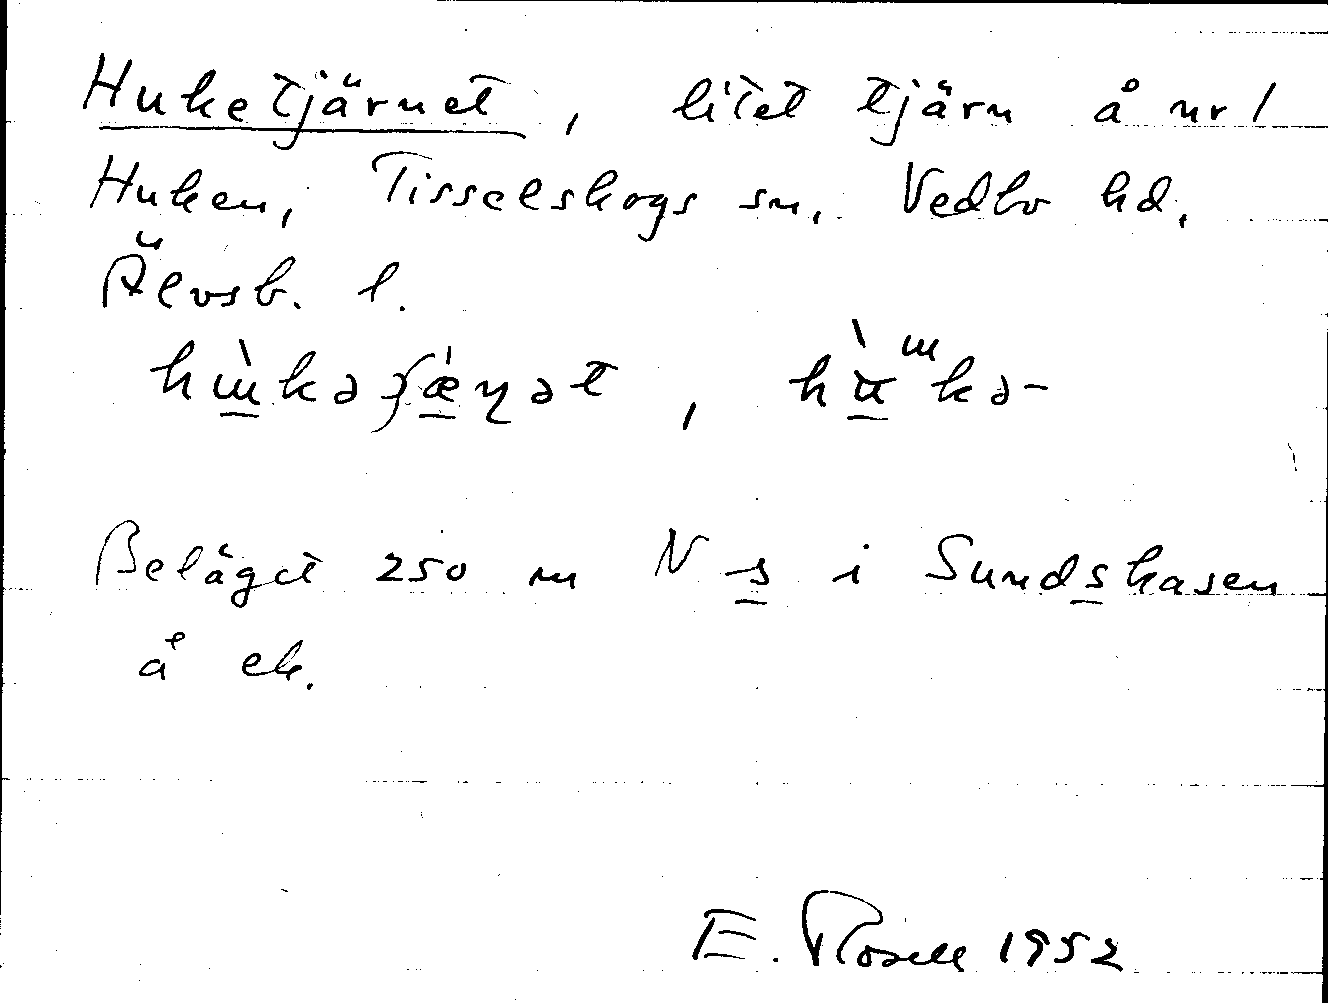 Huketjärnet, litet tjärn å nr 1
Huken, Tisselskogs sn, Vedbo hd,
Älvsb. l.
Beläget 250 m N s i Sundskasen
å ek.
E. Rosell 1952